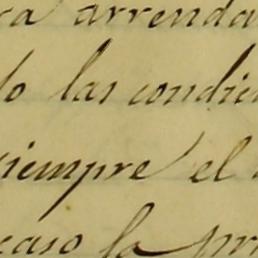 ra arrenda
lo las condici
siempre el
caso la pri